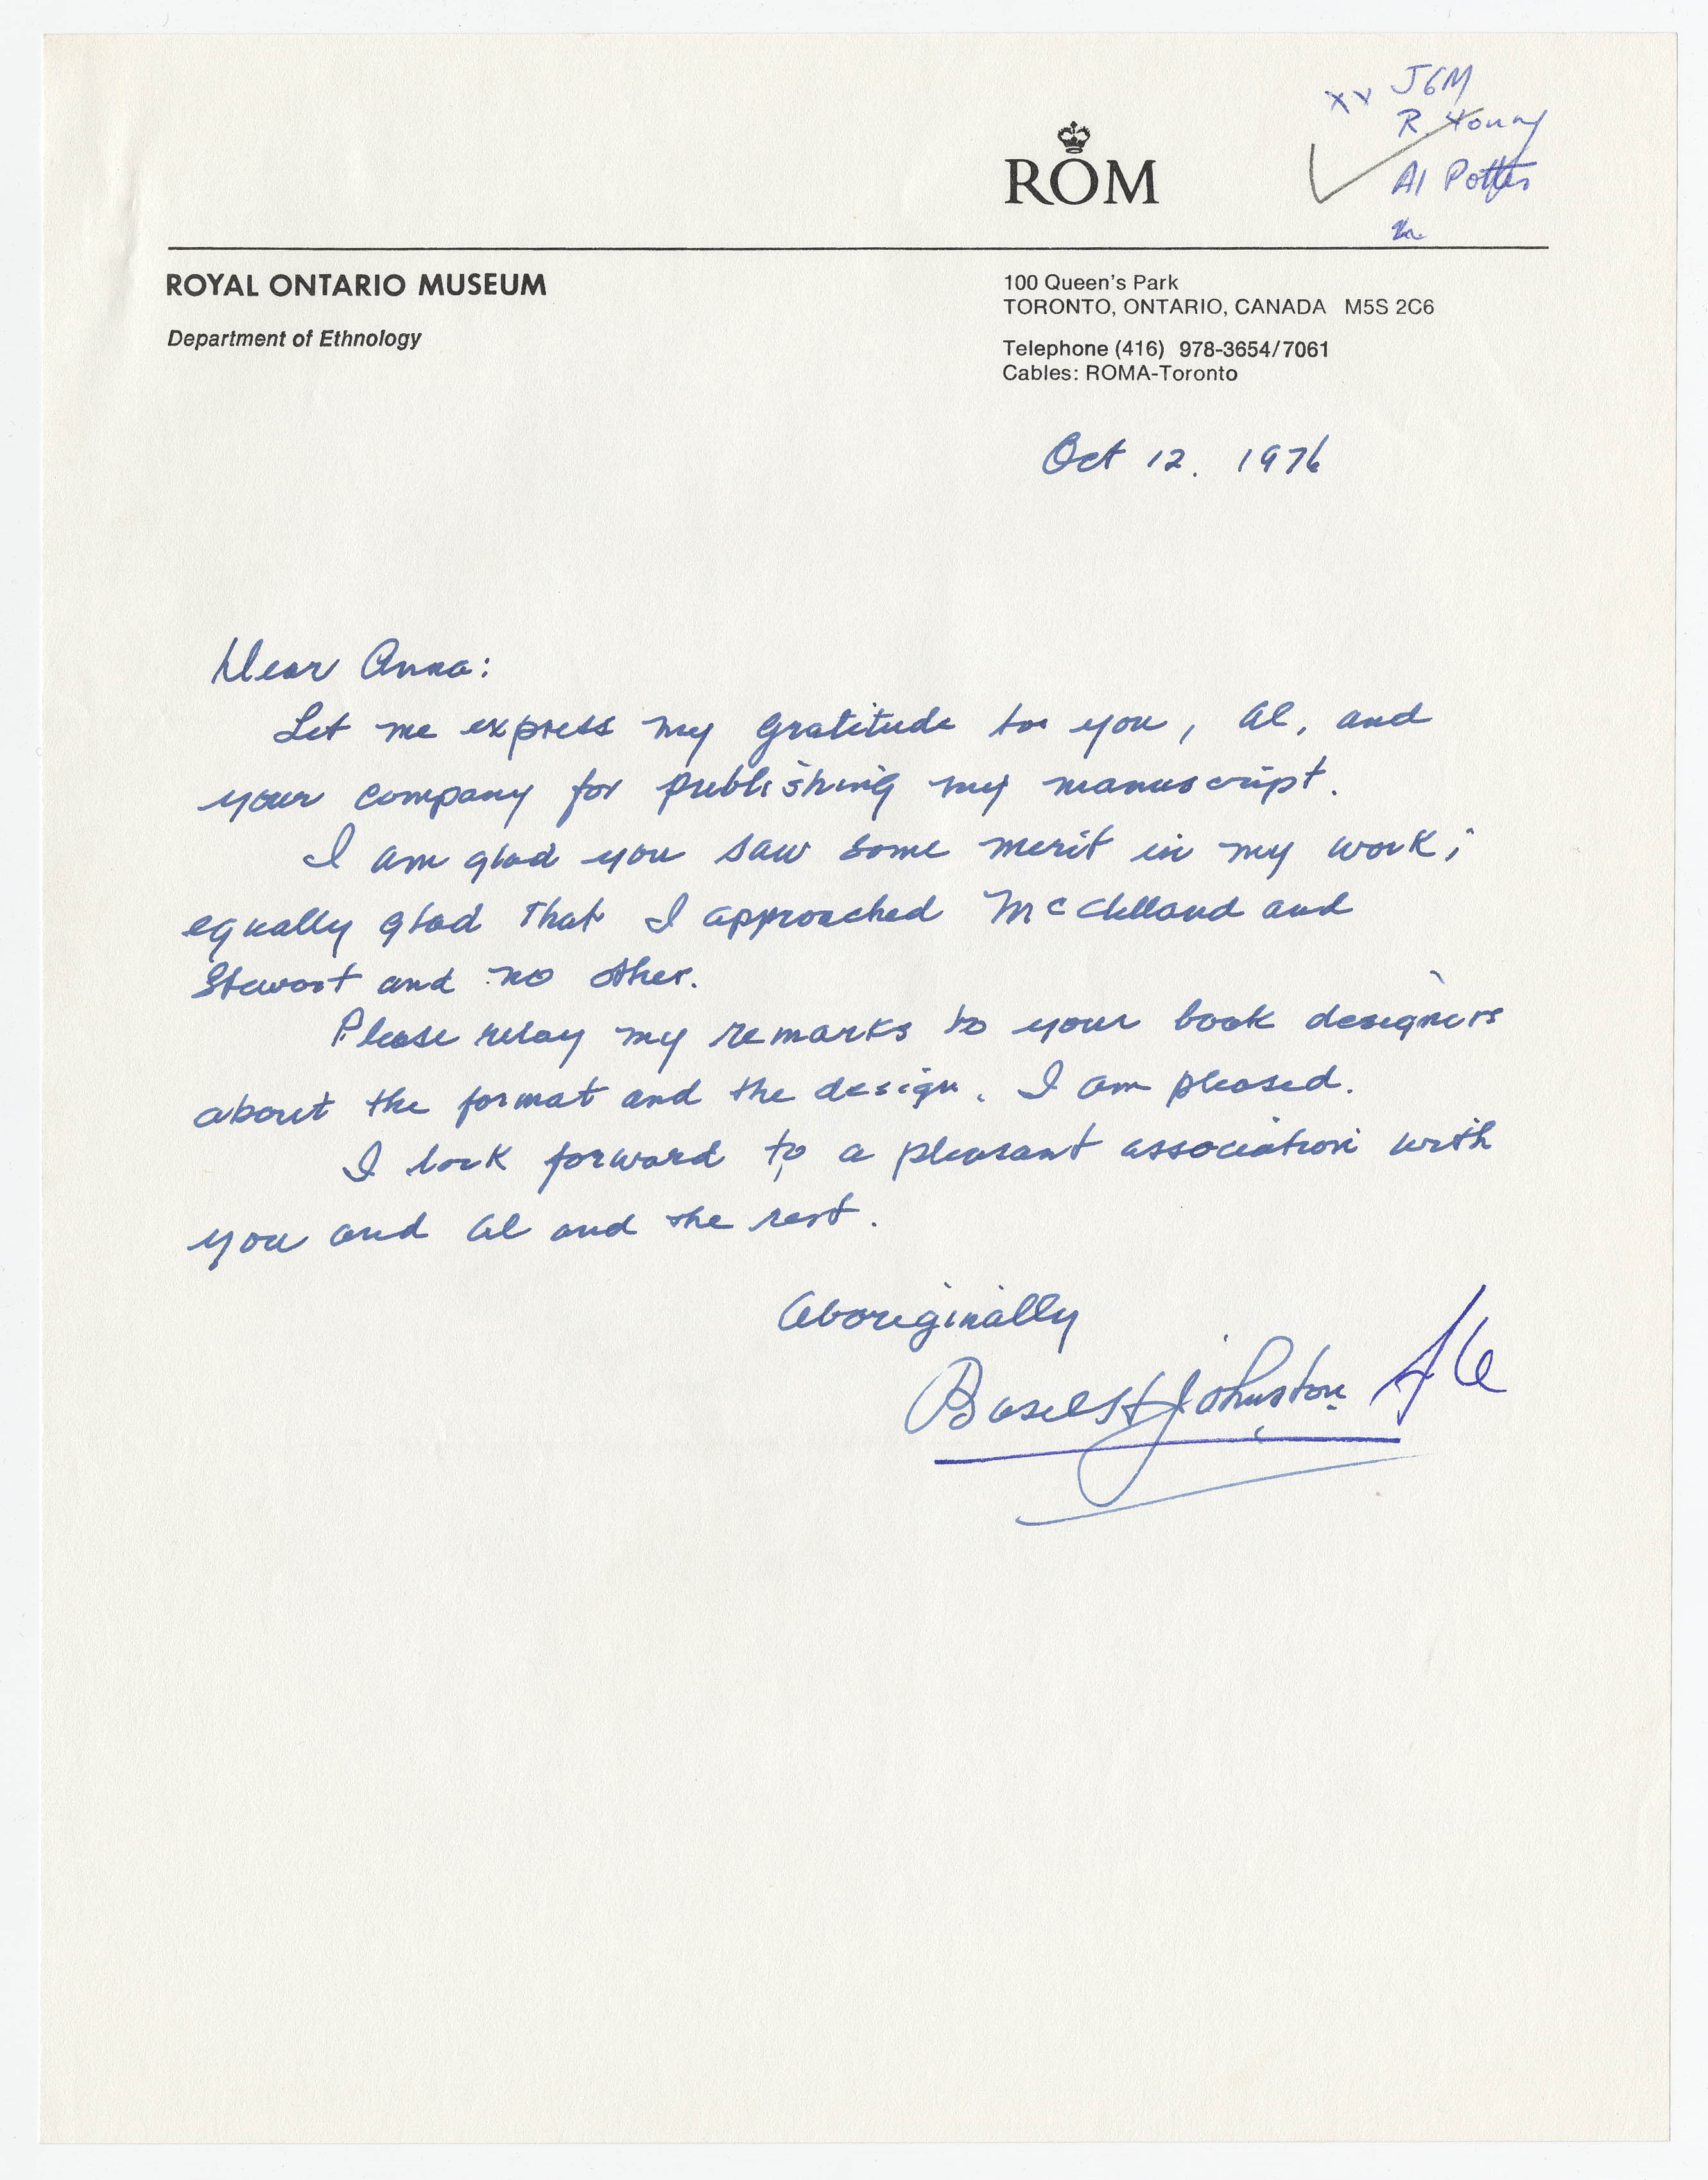 xx JGM
R. Young
Al Potter
ROM
ROYAL ONTARIO MUSEUM
Department of Ethnology
100 Queen's Park
TORONTO, ONTARIO, CANADA M5S 2C6
Telephone (416) 978-3654/7061
Cables: ROMA-Toronto
Oct 12. 1976
Dear Anna:
Let me express my gratitude to you, Al, and
your company for publishing my manuscript.
I am glad you saw some merit in my work;
equally glad that I approached McClelland and
Stewart and no other.
Please relay my remarks to your book designers
about the format and the design. I am pleased.
I look forward to a pleasant association with
you and Al and the rest.
Aboriginally
Basil H Johnston